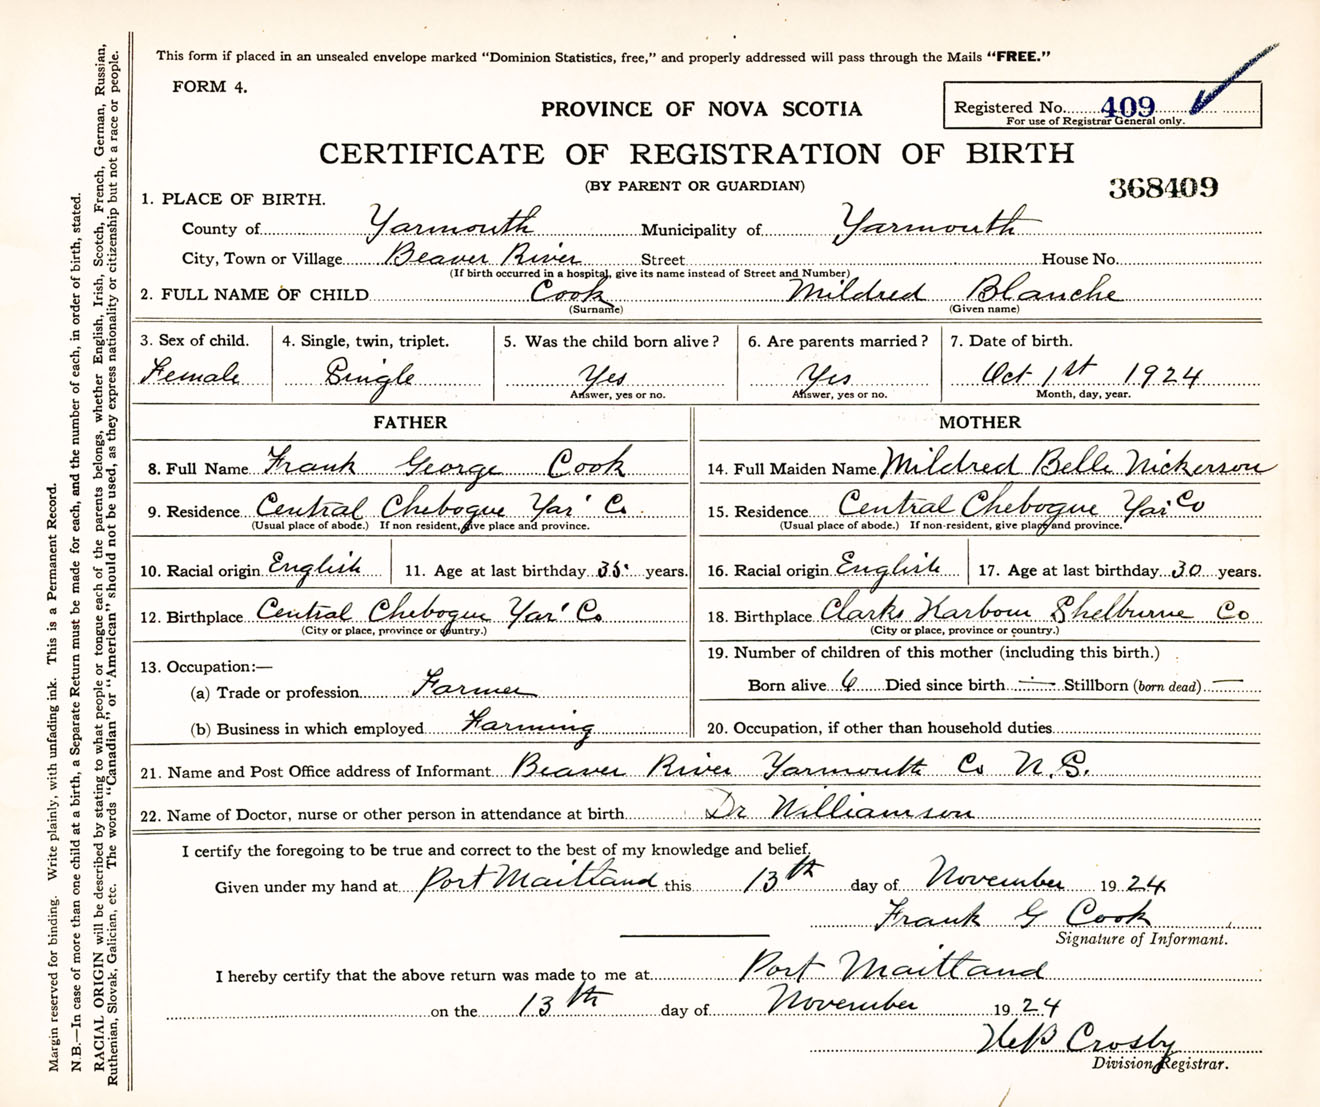 This form if placed in an unsealed envelope marked "Dominion Statistics, free," and properly addressed will pass through the Mails "FREE."
FORM 4.
PROVINCE OF NOVA SCOTIA
Registered No. 409
For use of Registrar General only.
CERTIFICATE OF REGISTRATION OF BIRTH
(BY PARENT OR GUARDIAN)
368409
1. PLACE OF BIRTH.
County of Yarmouth Municipality of Yarmouth
City, Town or Village Beaver River Street House No.
(If birth occurred in a hospital, give its name instead of Street and Number)
2. FULL NAME OF CHILD Cook Mildred Blanche
(Surname) (Given name)
3. Sex of child. 4. Single, twin, triplet. 5. Was the child born alive? 6. Are parents married? 7. Date of birth.
Female Single Yes Yes Oct 1st 1924
Answer, yes or no. Answer, yes or no. Month, day, year.
FATHER MOTHER
8. Full Name Frank George Cook 14. Full Maiden Name Mildred Belle Nickerson
9. Residence Central Chebogue Yar' Co 15. Residence Central Chebogue Yar' Co
(Usual place of abode.) If non resident, give place and province. (Usual place of abode.) If non-resident, give place and province.
10. Racial origin English 11. Age at last birthday 35 years. 16. Racial origin English 17. Age at last birthday 30 years.
12. Birthplace Central Chebogue Yar' Co 18. Birthplace Clarks Harbour Shelburne Co
(City or place, province or country.) (City or place, province or country.)
13. Occupation:— 19. Number of children of this mother (including this birth.)
(a) Trade or profession Farmer Born alive 6 Died since birth — Stillborn (born dead) —
(b) Business in which employed Farming 20. Occupation, if other than household duties
21. Name and Post Office address of Informant Beaver River Yarmouth Co N.S.
22. Name of Doctor, nurse or other person in attendance at birth Dr Williamson
I certify the foregoing to be true and correct to the best of my knowledge and belief.
Given under my hand at Port Maitland this 13th day of November 1924
Frank G Cook
Signature of Informant.
I hereby certify that the above return was made to me at Port Maitland
on the 13th day of November 1924
Crosby
Division Registrar.
Margin reserved for binding. Write plainly, with unfading ink. This is a Permanent Record.
N.B.—In case of more than one child at a birth, a Separate Return must be made for each, and the number of each, in order of birth, stated.
RACIAL ORIGIN will be described by stating to what people or tongue each of the parents belongs, whether English, Irish, Scotch, French, German, Russian,
Ruthenian, Slovak, Galician, etc. The words "Canadian" or "American" should not be used, as they express nationality or citizenship but not a race or people.